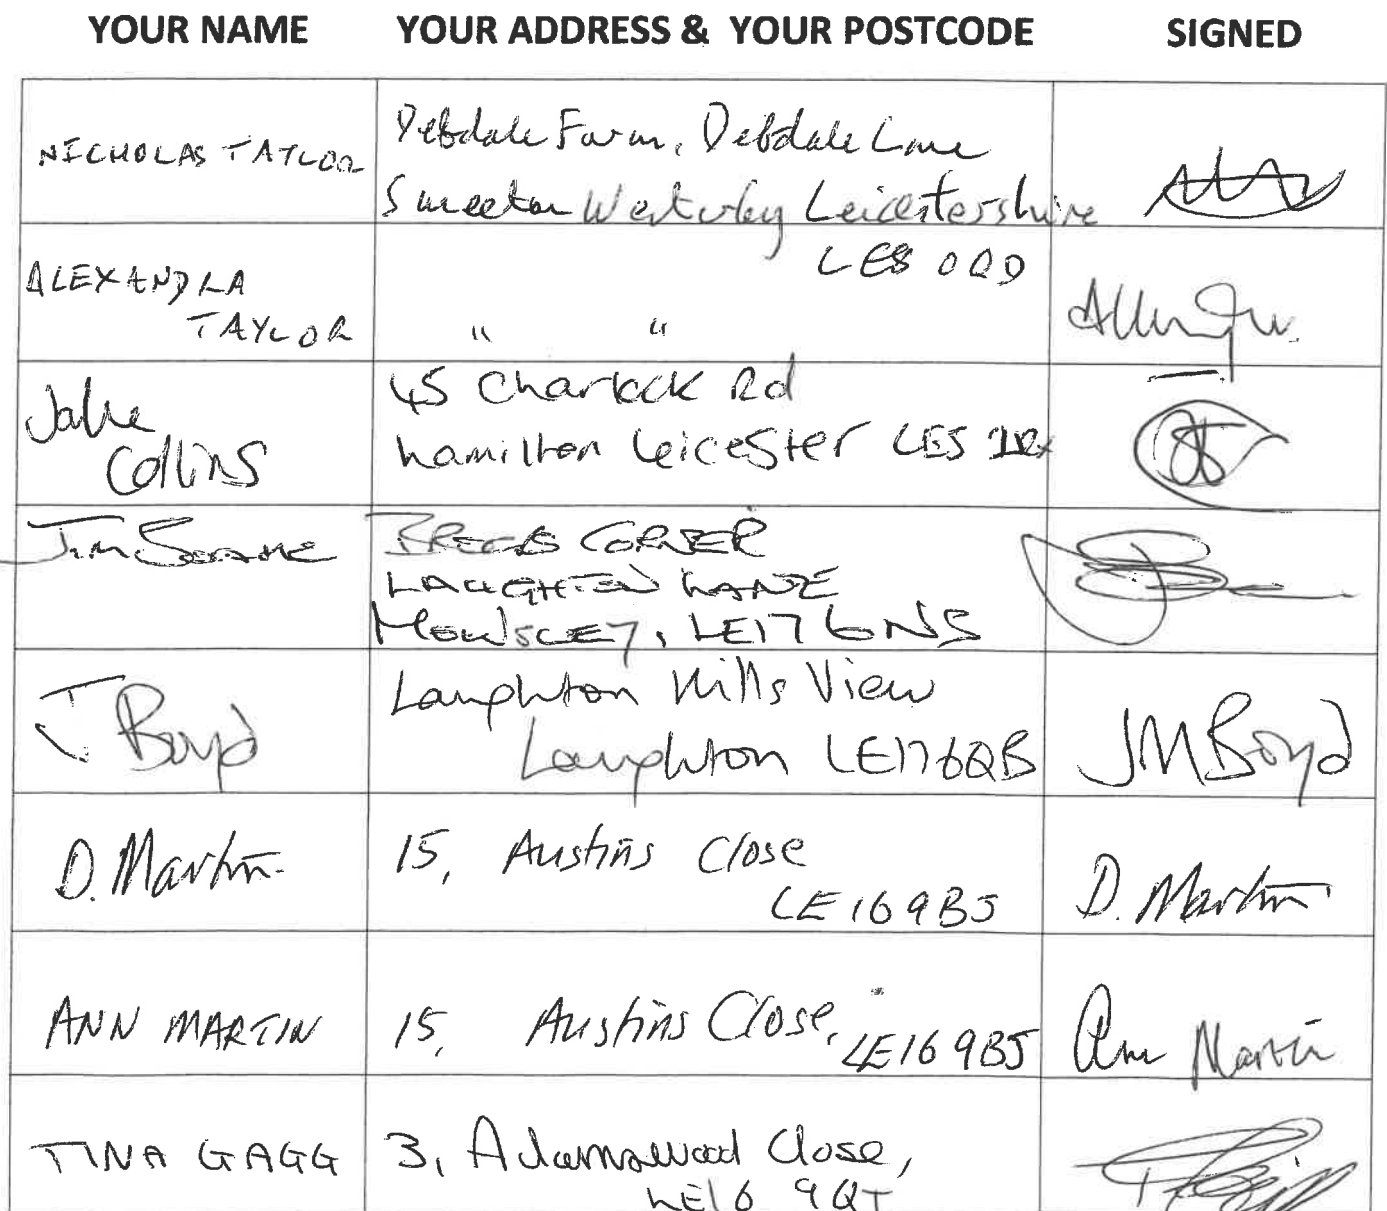 YOUR NAME YOUR ADDRESS & YOUR POSTCODE SIGNED
NICHOLAS TAYLOR
Debdale Farm, Debdale Lane
Smeeton Westerby Leicestershire
LE8 0QD
ALEXANDRA
TAYLOR
" "
Jake
Collins
45 Charlock Rd
hamilton Leicester LE5
Jim
CORNER
LAUGHTON LANE
MOWSLEY, LE17 6NS
J Boyd
Laughton Hills View
Laughton LE17 6QB
JM Boyd
D. Martin
15, Austins Close
LE16 9BJ
D. Martin
ANN MARTIN
15, Austins Close,
LE16 9BJ
Ann Martin
TINA GAGG
3, Adamswood Close,
LE16 9QT